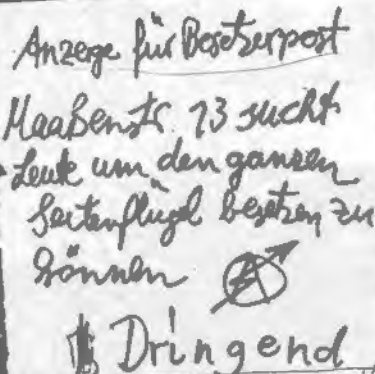 Anzeige für Besetzerpost
Maaßenstr. 13 sucht
Leute um den ganzen
Seitenflügel besetzen zu
können
Dringend